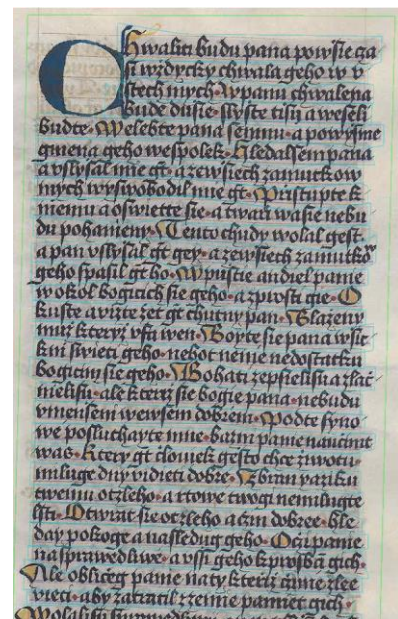 Chwaliti budu pana powssie cza
si wzdycky chwala geho w v
stech mych Wpanu chwalena
bude dusse slyste tissy a weseli
budte Welebte pana semnu a powysme
gmena geho wespolek hledalsem pana
a vslyssal mie gt a zewssiech zamutkow
mych wyswobodil mie gt Pristupte k
niemu a oswiette sie a twarzi wasse nebu
du pohanieny Tento chudy wolal gest
a pan vslyssal gt gey a zewssiech zamutkow
geho spasil gt ho Wpustie andiel panie
w okol bogicich sie geho a zprosti gie O
kuste a vizte zet gt chutny pan Blazeny
muz kteryz vfa wen Boyte sie pana wsic
kni swieti geho nehot nenie nedostatku
bogicim sie geho Bohati zepsieli su a zlac
nieli su ale kterzi sie bogie pana nebudu
vmensseni wewsem dobrem Podte syno
we posluchayte mne bazni panie nauczimt
was Ktery gt clowiek gesto chce ziwotu
miluge dny widieti dobre Zbran yazyku
twemu otzleho a rtowe twogi nemluwte
lsti Otwrat sie ot zleho a czin dobrze hle
day pokoge a nasledug geho Oczi panie
na sprawedliwe a vssi geho k prosbam gich
Ale obliceg panie na ty kteriz czinie zlee
wieci aby zatratil z zemie pamiet gich